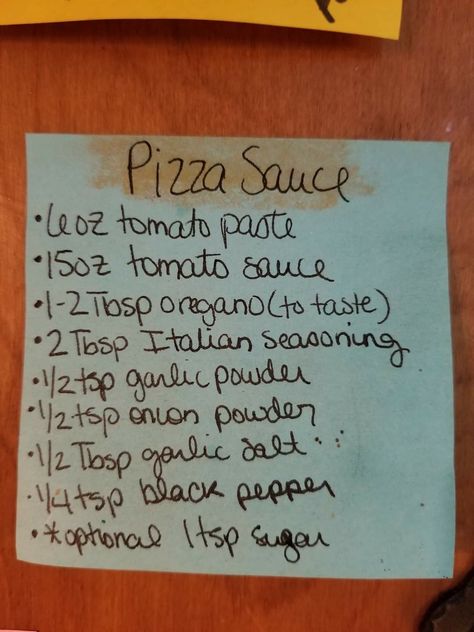 Pizza Sauce
•6oz tomato paste
•15oz tomato sauce
•1-2 Tbsp oregano (to taste)
•2 Tbsp Italian seasoning
•1/2 tsp garlic powder
•1/2 tsp onion powder
•1/2 Tbsp garlic salt
•1/4 tsp black pepper
•*optional 1 tsp sugar